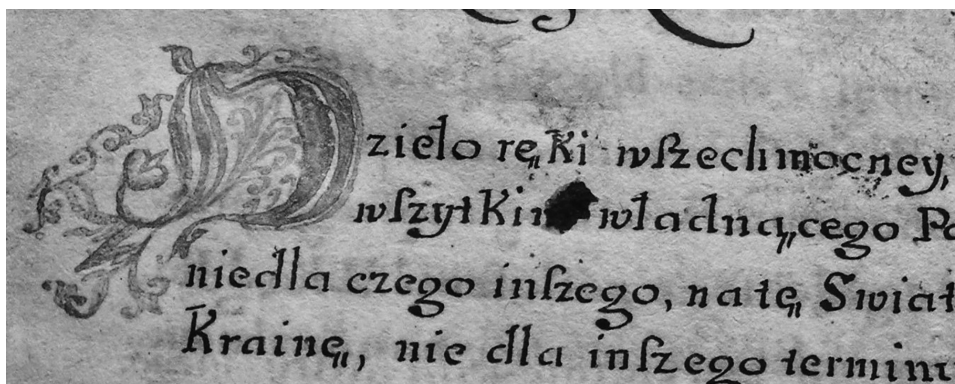 Dzieło ręki wſzechmocney,
wſzytkim władnącego
niedla czego inſzego, na tę Swiat
Krainę, nie dla inſzego